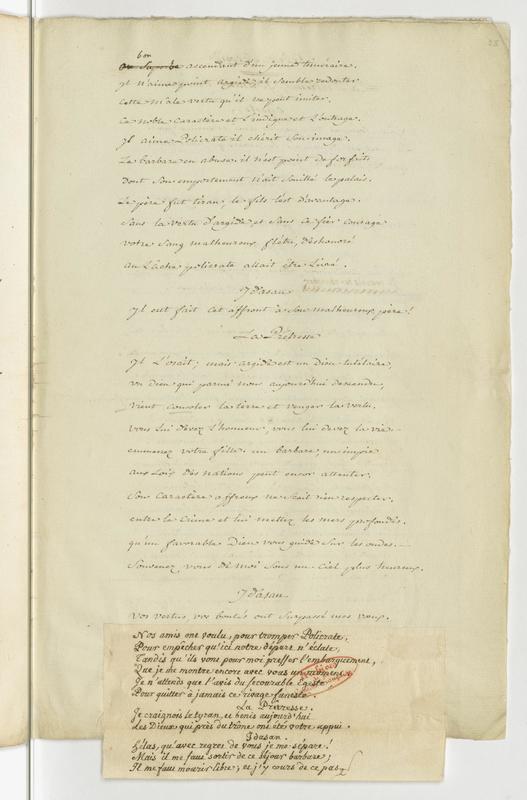 28
bon
ou Superbe ascendant d'un jeune téméraire.
Il n'aime point argide, il Semble redouter
Cette mâle vertu qu'il ne peut imiter.
Ce noble Caractère et L'indigne et L'outrage.
Il aime Policrate il chérit Son image.
Le barbare en abuse. il n'est point de forfaits
dont Son emportement n'ait Souillé le palais.
Le père fut tiran, le fils l'est d'avantage.
Sans la vertu d'argide, et Sans ce fier courage
votre Sang malheureux flétri, déshonoré
au Lâche policrate allait être Livré.
Ydasan
Il eut fait cet affront à Son malheureux père!
La Prêtresse
Il L'osait; mais argide est un Dieu tutélaire,
un Dieu qui parmi nous aujourd'hui descendu,
vient consoler la terre et venger la vertu.
vous Lui devez L'honneur, vous lui devez la vie
emmenez votre fille. un barbare, un impie
aux Loix des nations peut encor attenter.
Son Caractère affreux ne Scait rien respecter.
entre le Crime et lui mettez les mers profondes.
qu'un favorable Dieu vous guide Sur les ondes.
Souvenez vous de moi Sous un Ciel plus heureux.
Ydasan
Vos vertus, vos bontés ont Surpassé mes vœux.
Nos amis ont voulu, pour tromper Policrate,
Pour empêcher qu'ici notre départ n'éclate,
Tandis qu'ils vont pour moi presser l'embarquement,
Que je me montre encore avec vous un moment.
Je n'attends que l'avis du secourable Egeste
Pour quitter à jamais ce rivage funeste.
La Prêtresse.
Je craignois le tyran, et bénis aujourd'hui
Les Dieux qui près du trône ont été votre appui.
Idasan
Hélas, qu'avec regret de vous je me sépare!
Mais il me faut sortir de ce séjour barbare;
Il me faut mourir libre; et j'y cours de ce pas